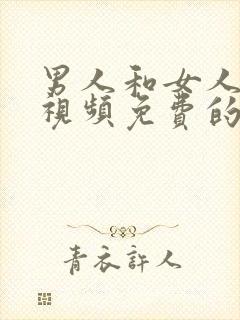 男人和女人
視頻免費的
青衣許人